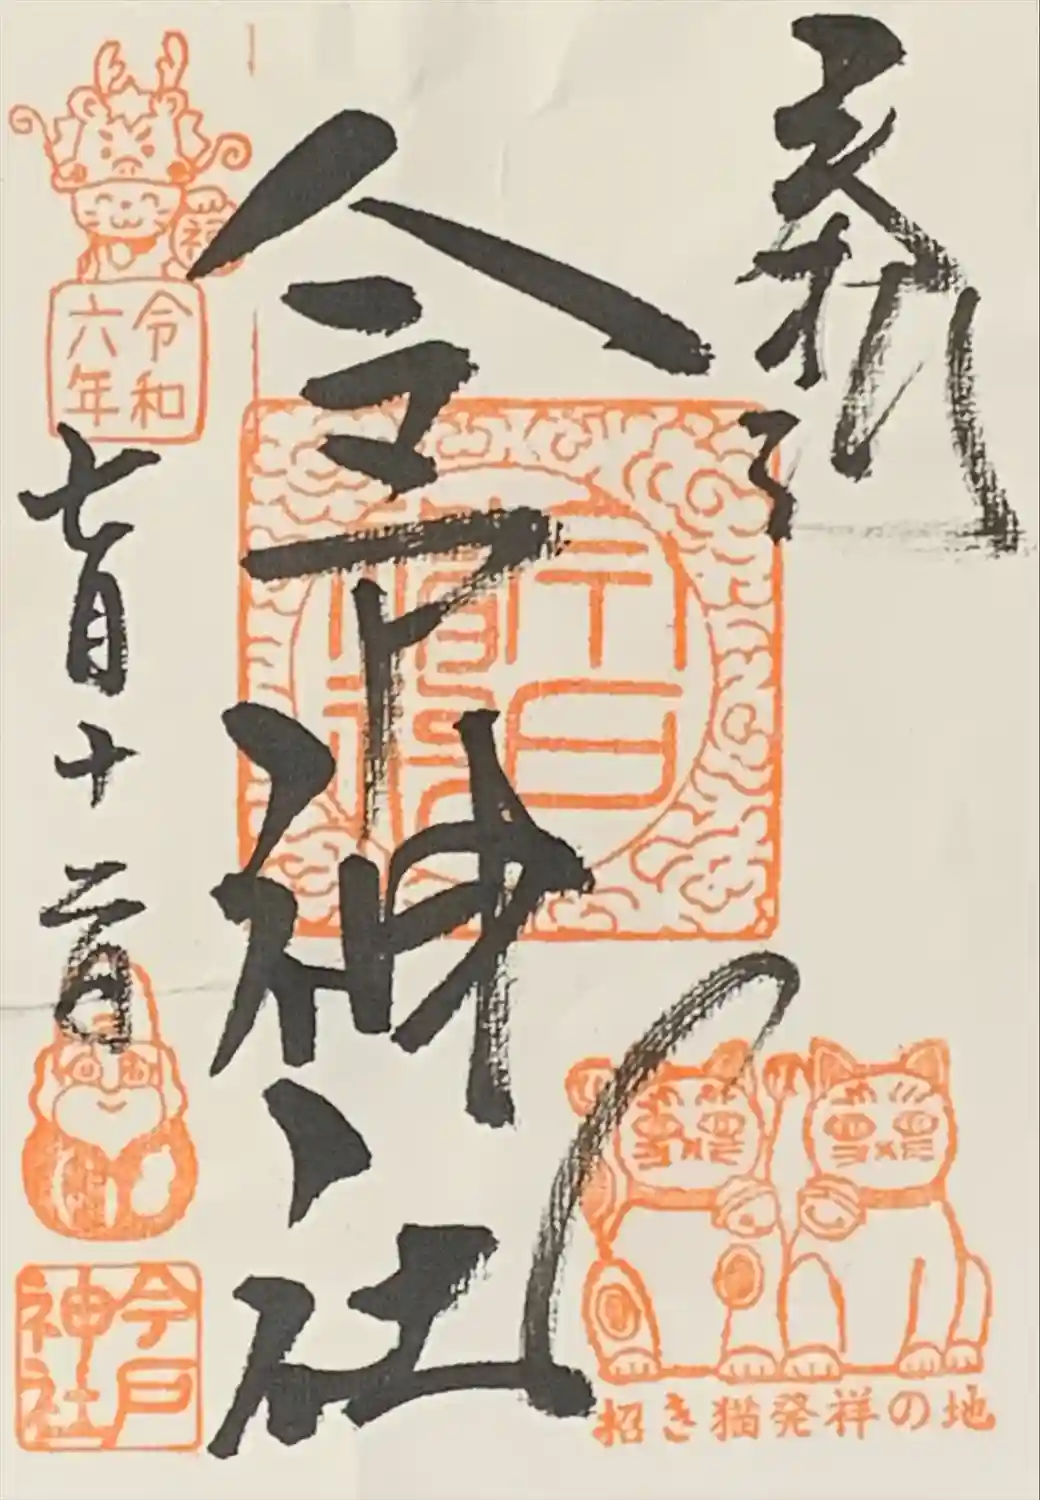 奉拝
今戸神社
令和
六年
七月十二日
今戸
神社
招き猫発祥の地
福